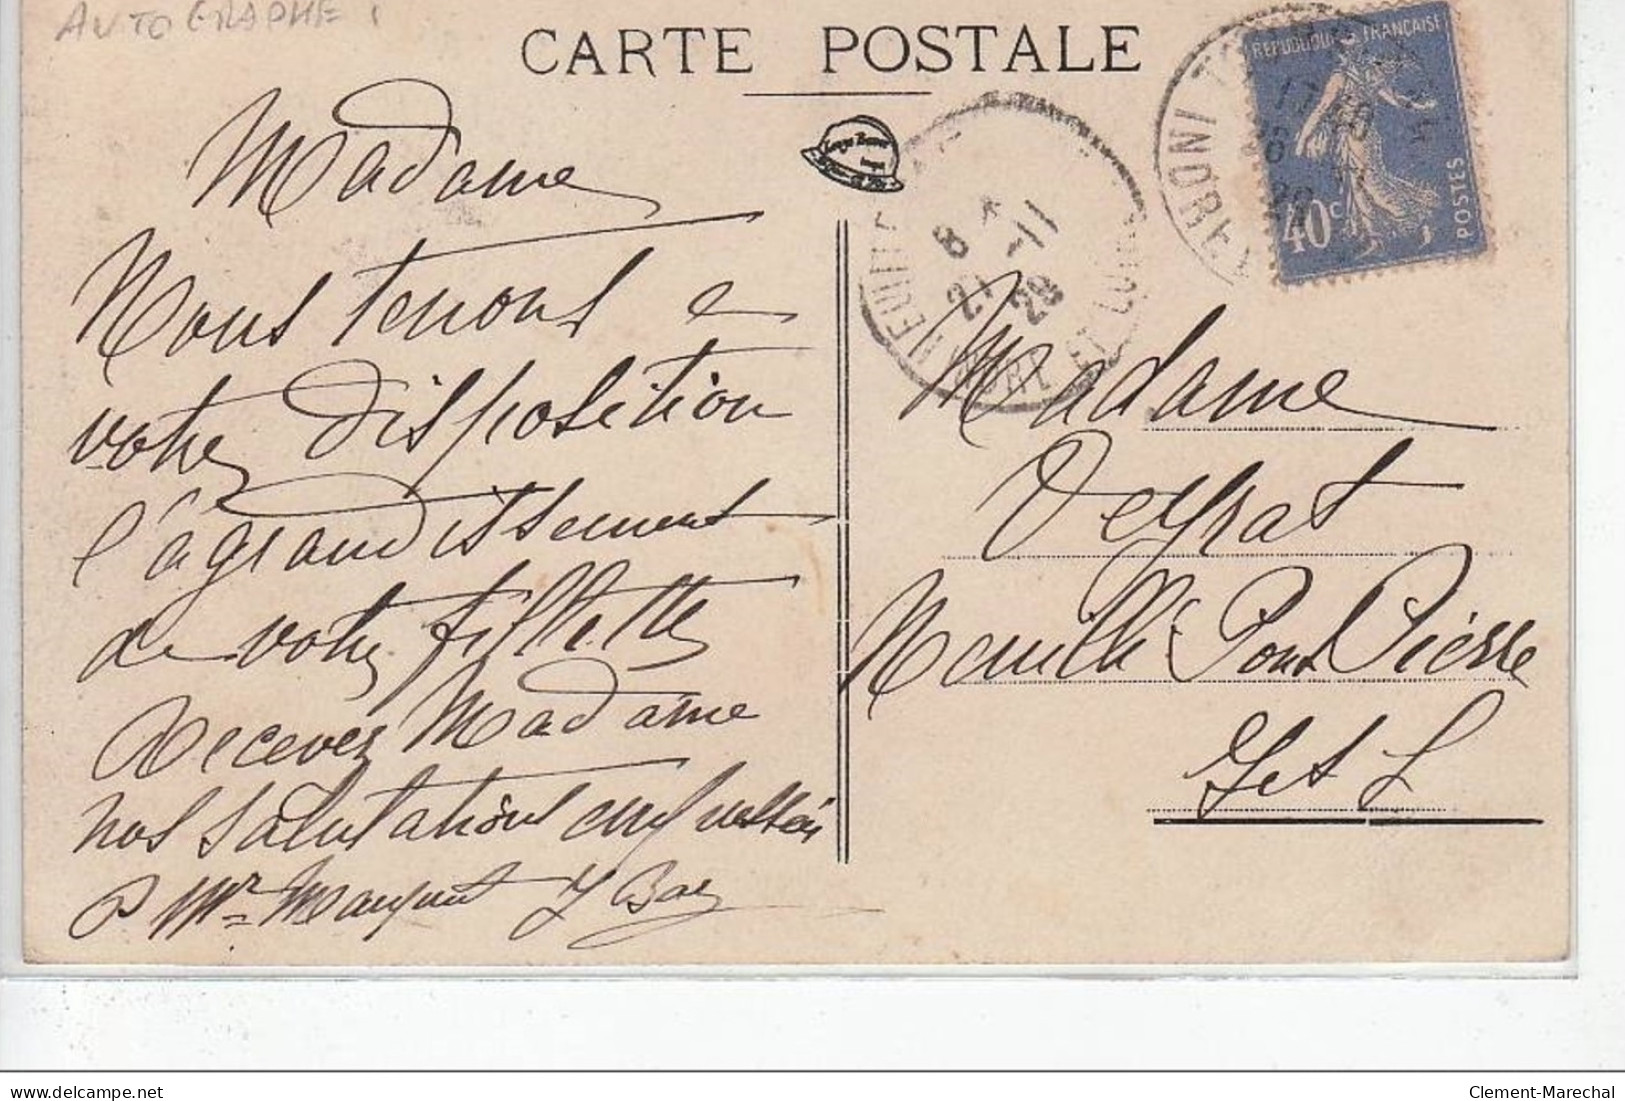 AUTOGRAPHE !
CARTE POSTALE
REPUBLIQUE FRANÇAISE
40c
POSTES
8
21 -11
28
INDRE ET LOIRE
Madame
Nous tenons a
votre disposition
l'agrandissement
de votre fillette
Recevez Madame
nos salutations empressées
P Mr
Madame
Veyrat
Neuillé Pont Pierre
I et L
delcampe.net
Clement-Marechal